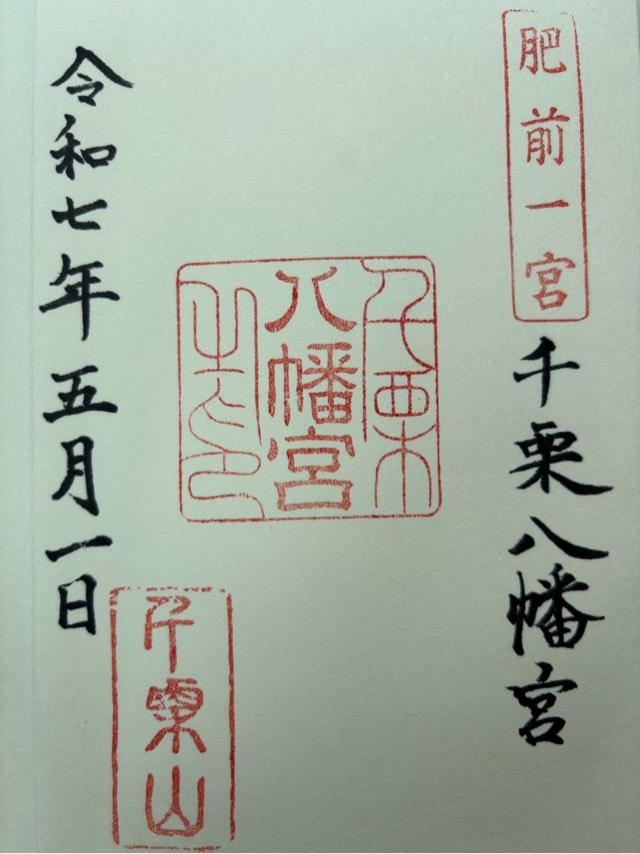 肥前一宮
千栗八幡宮
千栗
八幡宮
之印
千栗山
令和七年五月一日